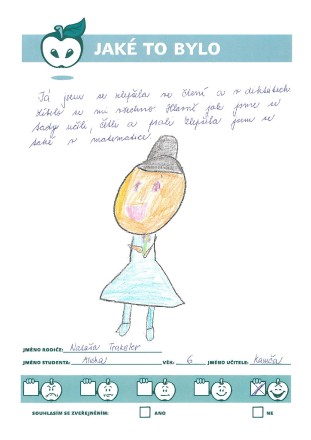 JAKÉ TO BYLO
Já jsem se zlepšila ve čtení a v diktátech
líbilo se mi všechno hlavně jak jsme se
tady učili, četli a psali zlepšila jsem se
také v matematice
JMÉNO RODIČE: Traksler
JMÉNO STUDENTA: VĚK: 6 JMÉNO UČITELE: Kamča
SOUHLASÍM SE ZVEŘEJNĚNÍM: ANO NE